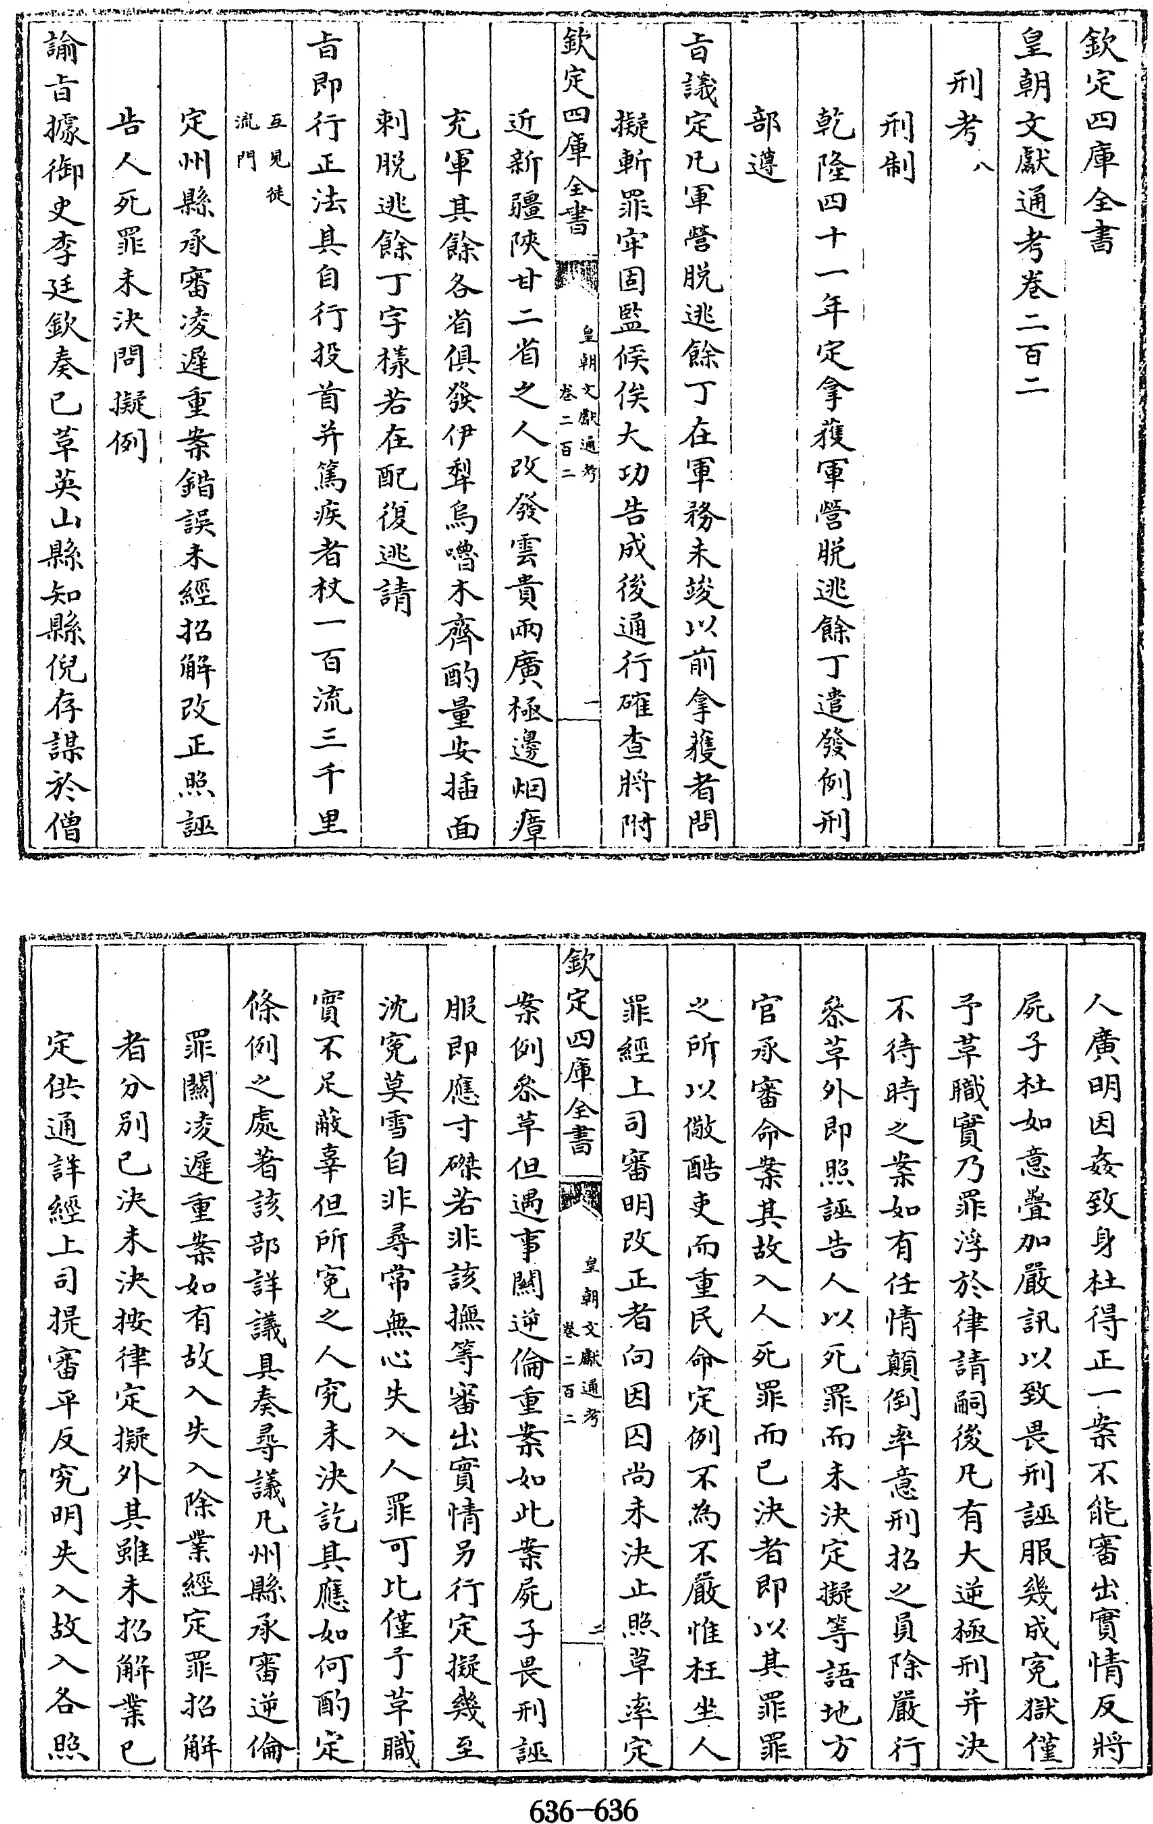 欽定四庫全書
皇朝文獻通考卷二百二
刑考八
刑制
乾隆四十一年定拿獲軍營脱逃餘丁遣發例刑
部遵
㫖議定凡軍營脱逃餘丁在軍務未竣以前拿獲者問
擬斬罪牢固監候俟大功告成後通行確查將附
欽定四庫全書
皇朝文獻通考
卷二百二
一
近新疆陜甘二省之人改發雲貴兩廣極邊烟瘴
充軍其餘各省俱發伊犂烏嚕木齊酌量安插面
刺脱逃餘丁字様若在配復逃請
㫖即行正法其自行投首并篤疾者杖一百流三千里
互見徒
流門
定州縣承審凌遲重案錯誤未經招解改正照誣
告人死罪未決問擬例
諭㫖據御史李廷欽奏已革英山縣知縣倪存謨於僧
人廣明因姦致身杜得正一案不能審出實情反將
屍子杜如意疊加嚴訊以致畏刑誣服幾成寃獄僅
予革職實乃罪浮於律請嗣後凡有大逆極刑并決
不待時之案如有任情顛倒率意刑招之員除嚴行
叅革外即照誣告人以死罪而未決定擬等語地方
官承審命案其故入人死罪而已決者即以其罪罪
之所以儆酷吏而重民命定例不為不嚴惟枉坐人
罪經上司審明改正者向因囚尚未決止照草率定
欽定四庫全書
皇朝文獻通考
卷二百二
二
案例叅革但遇事關逆倫重案如此案屍子畏刑誣
服即應寸磔若非該撫等審出實情另行定擬幾至
沈寃莫雪自非尋常無心失入人罪可比僅予革職
實不足蔽辜但所寃之人究未決訖其應如何酌定
條例之處著該部詳議具奏尋議凡州縣承審逆倫
罪關凌遲重案如有故入失入除業經定罪招解
者分別已決未決按律定擬外其雖未招解業已
定供通詳經上司提審平反究明失入故入各照
636-636